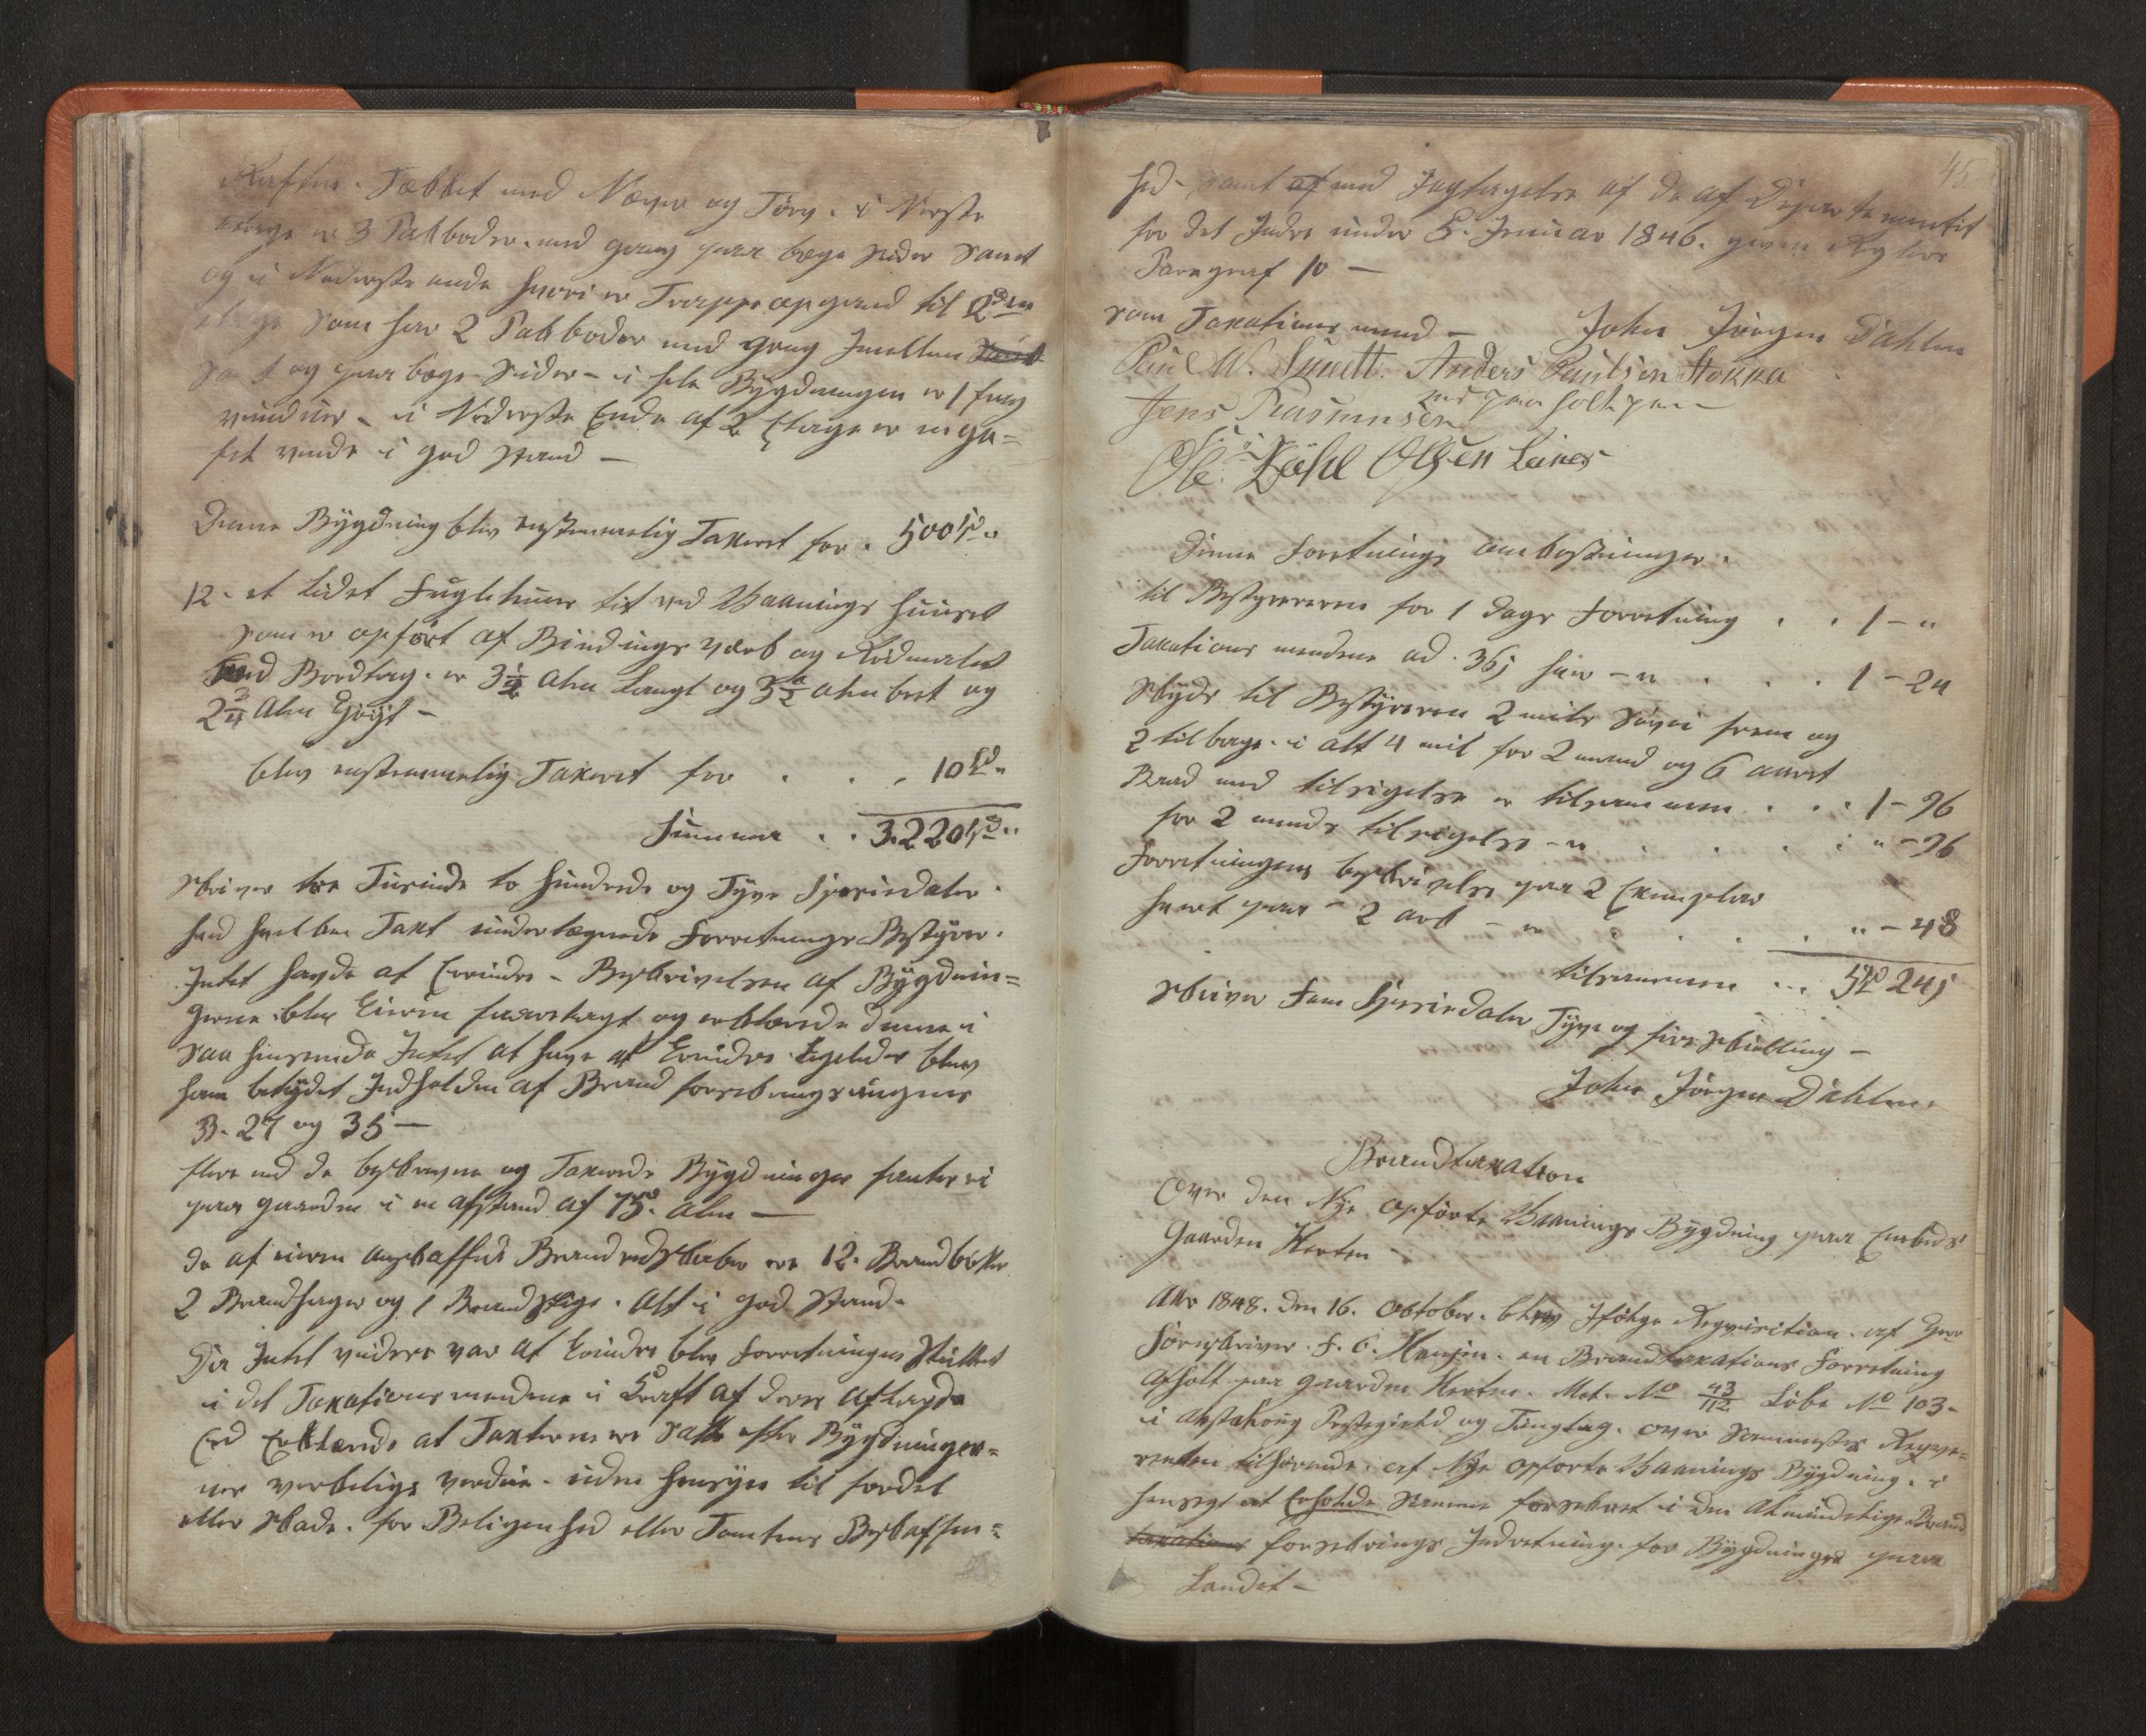 Tækket med Næver og Törv. i Nerste
etage er 3 Pakboder. med gang paa bege sider samt
og i Nederste ende hvori er Trappe opgand til 2den
etage som har 2 Pakboder med gang Imellem
samt og paa bege Sider – i hele Bygdningen er 1 fag
vinduer – i Nederste Ende af 2 Etage er
vinde i god stand –
Denne Bygdning blev enstemmelig Taxeret for . 500 Spd ..
12 – et lidet Fuglehuus tet ved Vaanings huuset
som er opfört af Bindings værk og Rödmalet
med Bordtag. er 3½ alen Langt og 3½ alen bret og
2¾ Alen Høyt –
blev enstemmelig Taxeret for . . . 10 Spd ..
Summa . . 3.220 Spd ..
skriver tre Tusinde to Hundrede og Tyve Speciedaler.
hvilken Taxt undertegnede Forretnings Bestyrer.
Intet havde at Erindre – Beskrivelsen af Bygdnin=
gerne blev Eieren forelagt og erklærede denne i
saa henseende Intet at have at Erindre. Ligeledes blev
ham betydet Indholden af Brand forsikrings
§. 27 og 35 –
flere end de beskrevne og Taxerede Bygdninger fantes ei
paa gaarden i en afstand af 75. alen –
de af eieren anskaffede Brandredskaber er 12. Brandbötter
2 Brandhager og 1 Brandstige. Alt i god stand.
Da Intet videre var at Erindre blev Forretningen Sluttet
i det Taxations mændene i Kraft af deres aflagde
Ed Erklærede at Taxterne er satte efter Bygdninger=
nes verkelige verdie. uden hensyn til fordel
eller skade. for Beligenhed eller Tomtens Beskaffen=
45
hed – samt af med Iagtagelse af de af Departementet
for det Indre under 8. Januar 1846. given Regler
Paragraf 10 –
som Taxations mænd – John Jörgen Dahlen
Paul W. Smedt. Anders Paulsen Stokka
Jens Rasmussen med paa holt pen –
Ole Dahl Olsen Leines
Denne Forretnings omkostninger.
til Bestyrerene for 1 dags Forretning . . 1 – "
Taxations mændene ad. 36 s hver – er . . . 1 – 24
Skyds til Bestyreren 2 mile Söevei frem og
2 tilbage. i alt 4 mil for 2 mænd og 6 aaret
Baad med tilsigelse er tilsammen . . . 1 – 96
for 2 mænds tilsigelse – er . . . . " – 96
Forretningens beskrivelse paa 2 Exemplar
hvert paa – 2 ark – er . . . . " – 48
tilsammen ... 5 Spd 24 s
skriver Fem Speciedaler Tyve og fire Skilling –
John Jörgen Dahlen.
Brandtaxation
Over den Nye opförte Vaanings Bygdning paa Embeds
Gaarden Korten –
Aar 1848. den 16. October. blev Ifölge Reqvisition. af Herr
Sorenskriver. F. C. Hansen. en Brandtaxations Forretning
Afholt paa gaarden Korten. Mat. No 43/112 Löbe No 103 –
i Alstahoug Prestegield og Tinglag. over sammestes Reqve=
renten tilhörende. af Nye opförte Vaanings Bygdning. i
hensegt at Erholde Samme forsekret i den Almindelige Brand
taxations forsekrings Indretning. for Bygdninger paa
Landet –